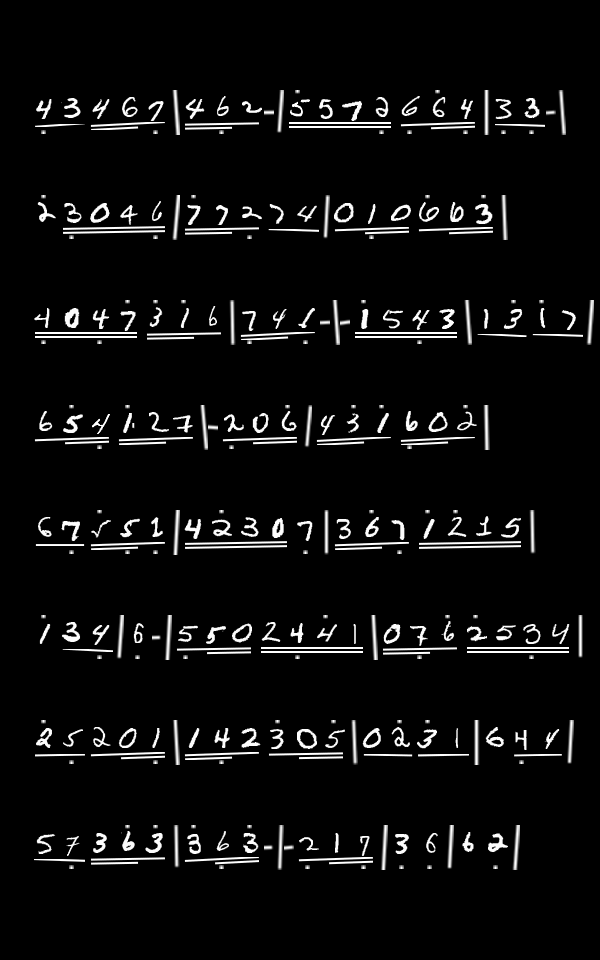 43467|462-|5572664|33-|
23046|77274|010663|
4047316|741-|-1543|1317|
654127|-206|431602|
67√51|42307|3671215|
134|6-|5502441|0762534|
25201|142305|0231|644|
57363|363-|-217|36|62|